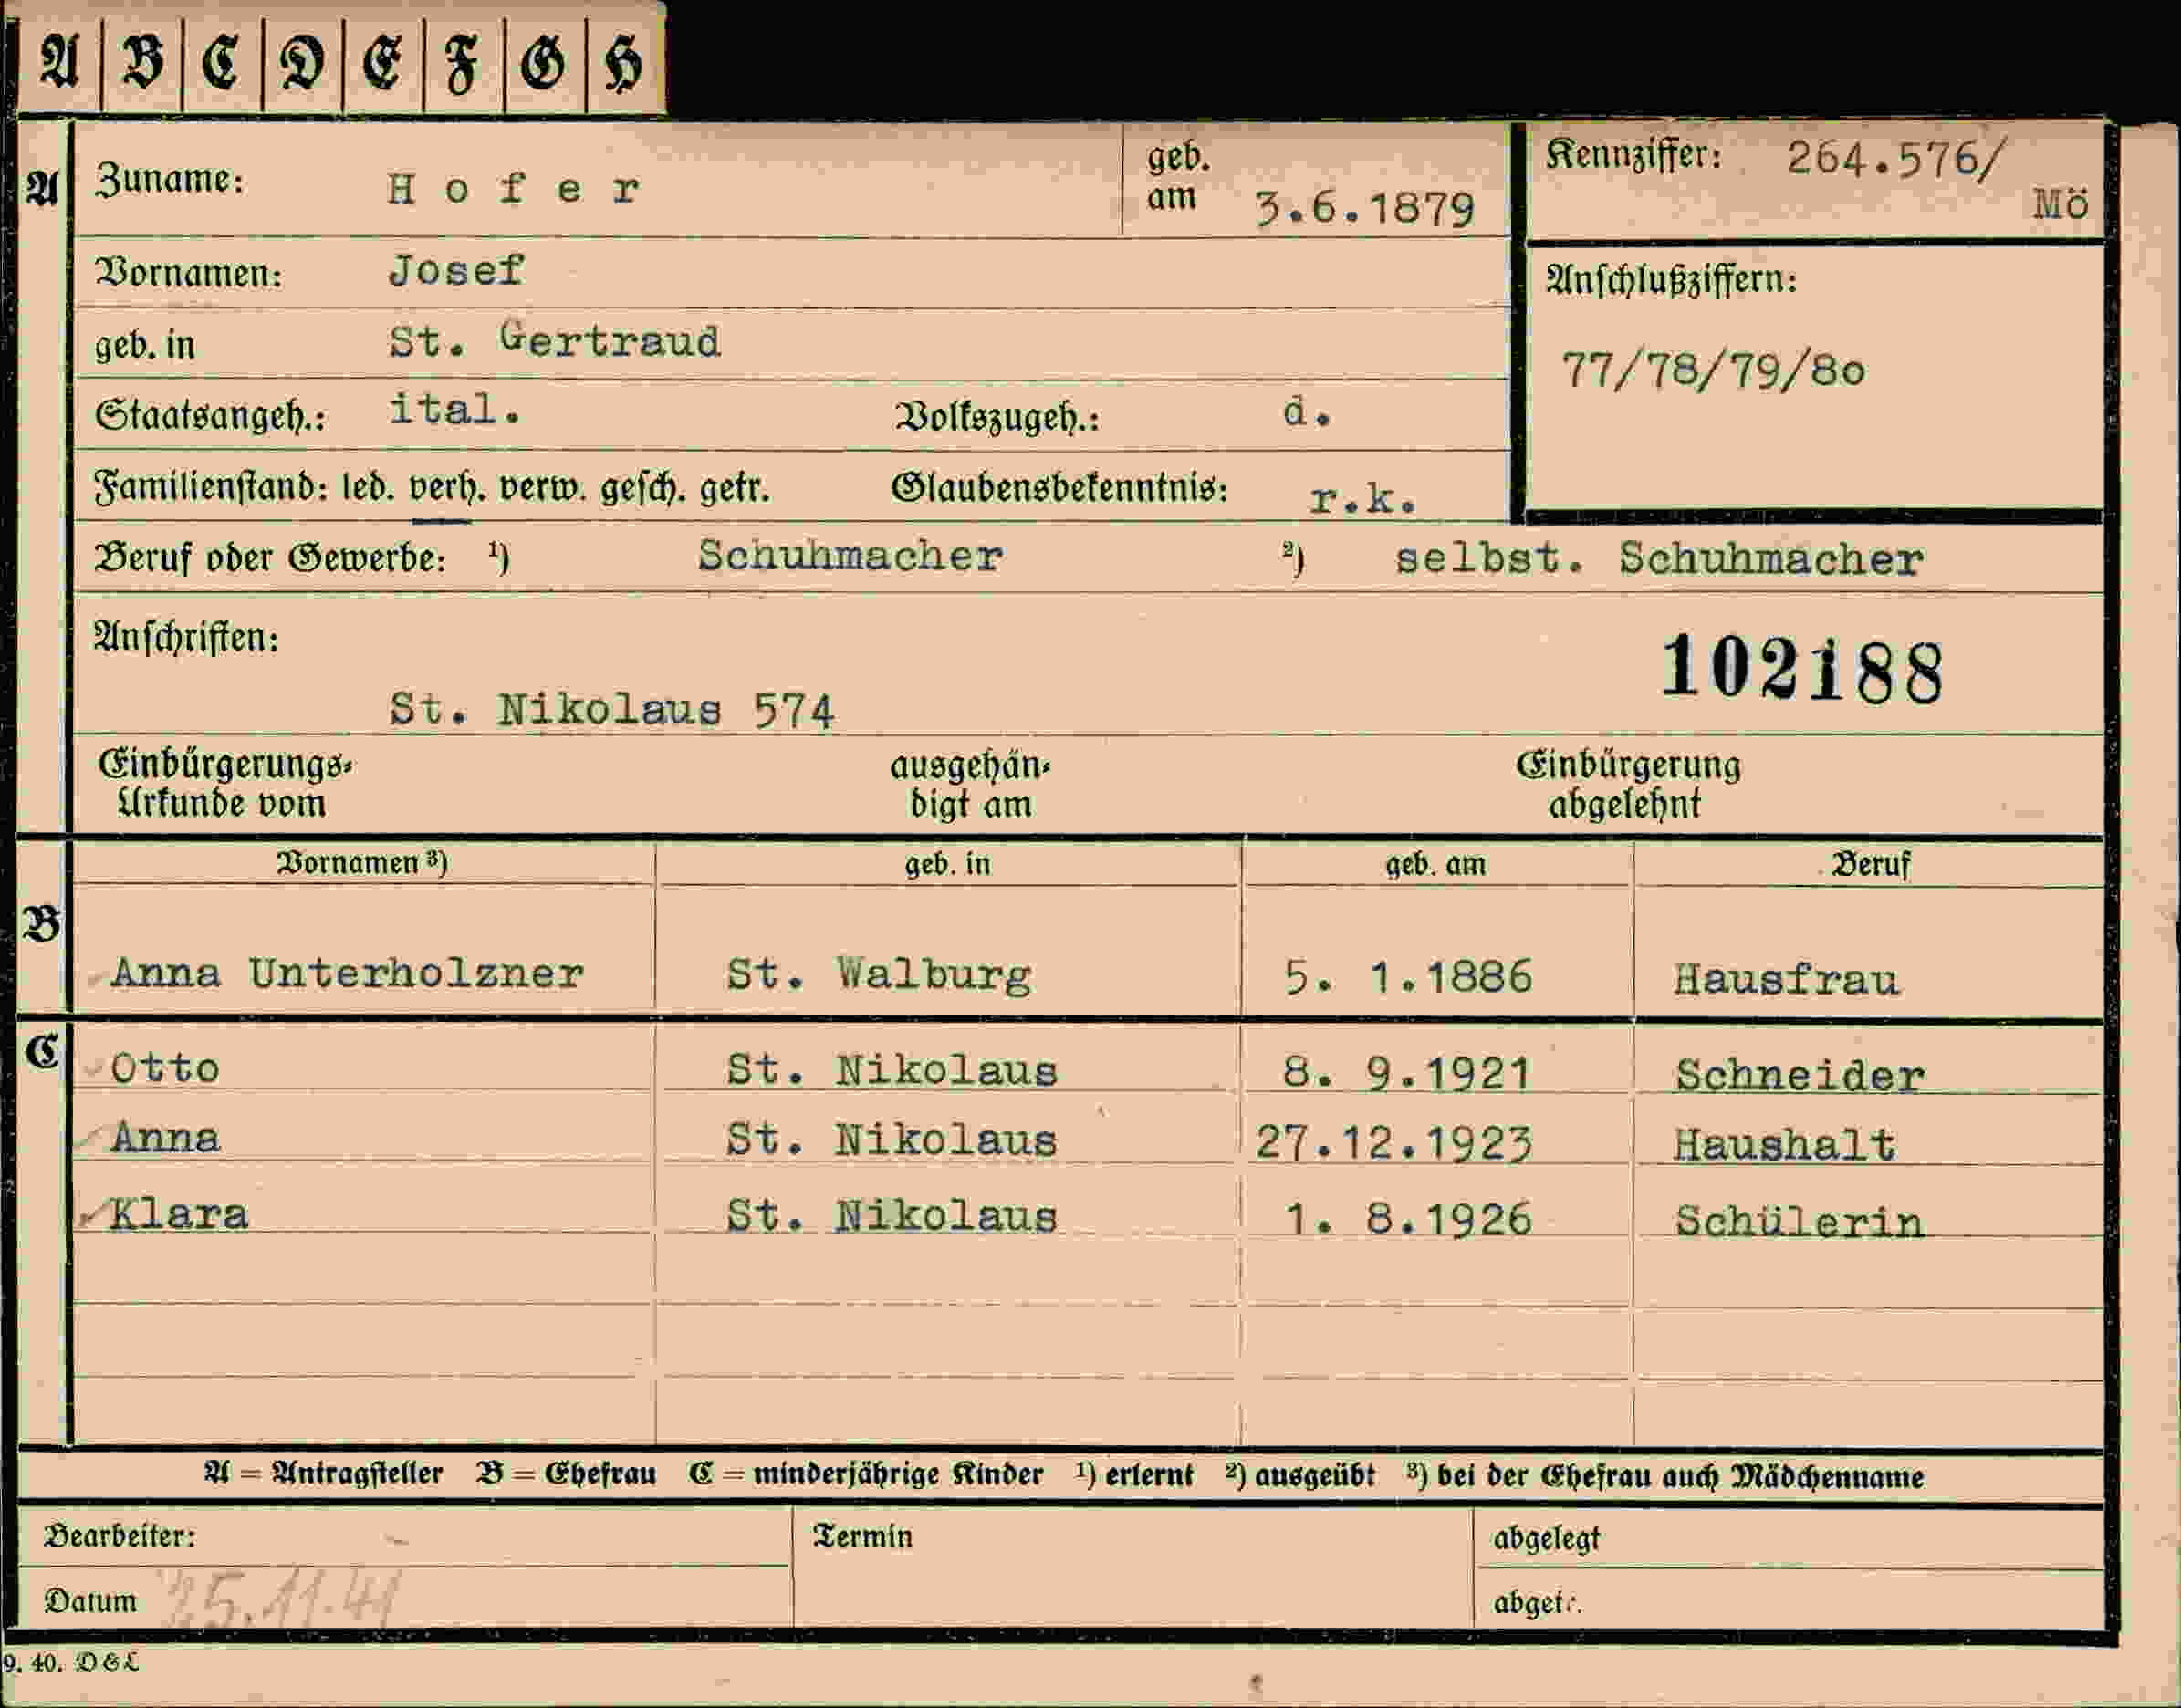 A B C D E F G H
A Zuname: Hofer geb. am 3.6.1879 Kennziffer: 264.576/
Mö
Vornamen: Josef Anschlußziffern:
geb. in St. Gertraud 77/78/79/80
Staatsangeh.: ital. Volkszugeh.: d.
Familienstand: led. verh. verw. gesch. getr. Glaubensbekenntnis: r.k.
Beruf oder Gewerbe: ¹) Schuhmacher ²) selbst. Schuhmacher
Anschriften: 102188
St. Nikolaus 574
Einbürgerungs- ausgehän- Einbürgerung
Urkunde vom digt am abgelehnt
Vornamen ³) geb. in geb. am Beruf
B
Anna Unterholzner St. Walburg 5. 1.1886 Hausfrau
C Otto St. Nikolaus 8. 9.1921 Schneider
Anna St. Nikolaus 27.12.1923 Haushalt
Klara St. Nikolaus 1. 8.1926 Schülerin
A = Antragsteller B = Ehefrau C = minderjährige Kinder ¹) erlernt ²) ausgeübt ³) bei der Ehefrau auch Mädchenname
Bearbeiter: Termin abgelegt
Datum 25.11.41 abgetr.
9. 40. D&L